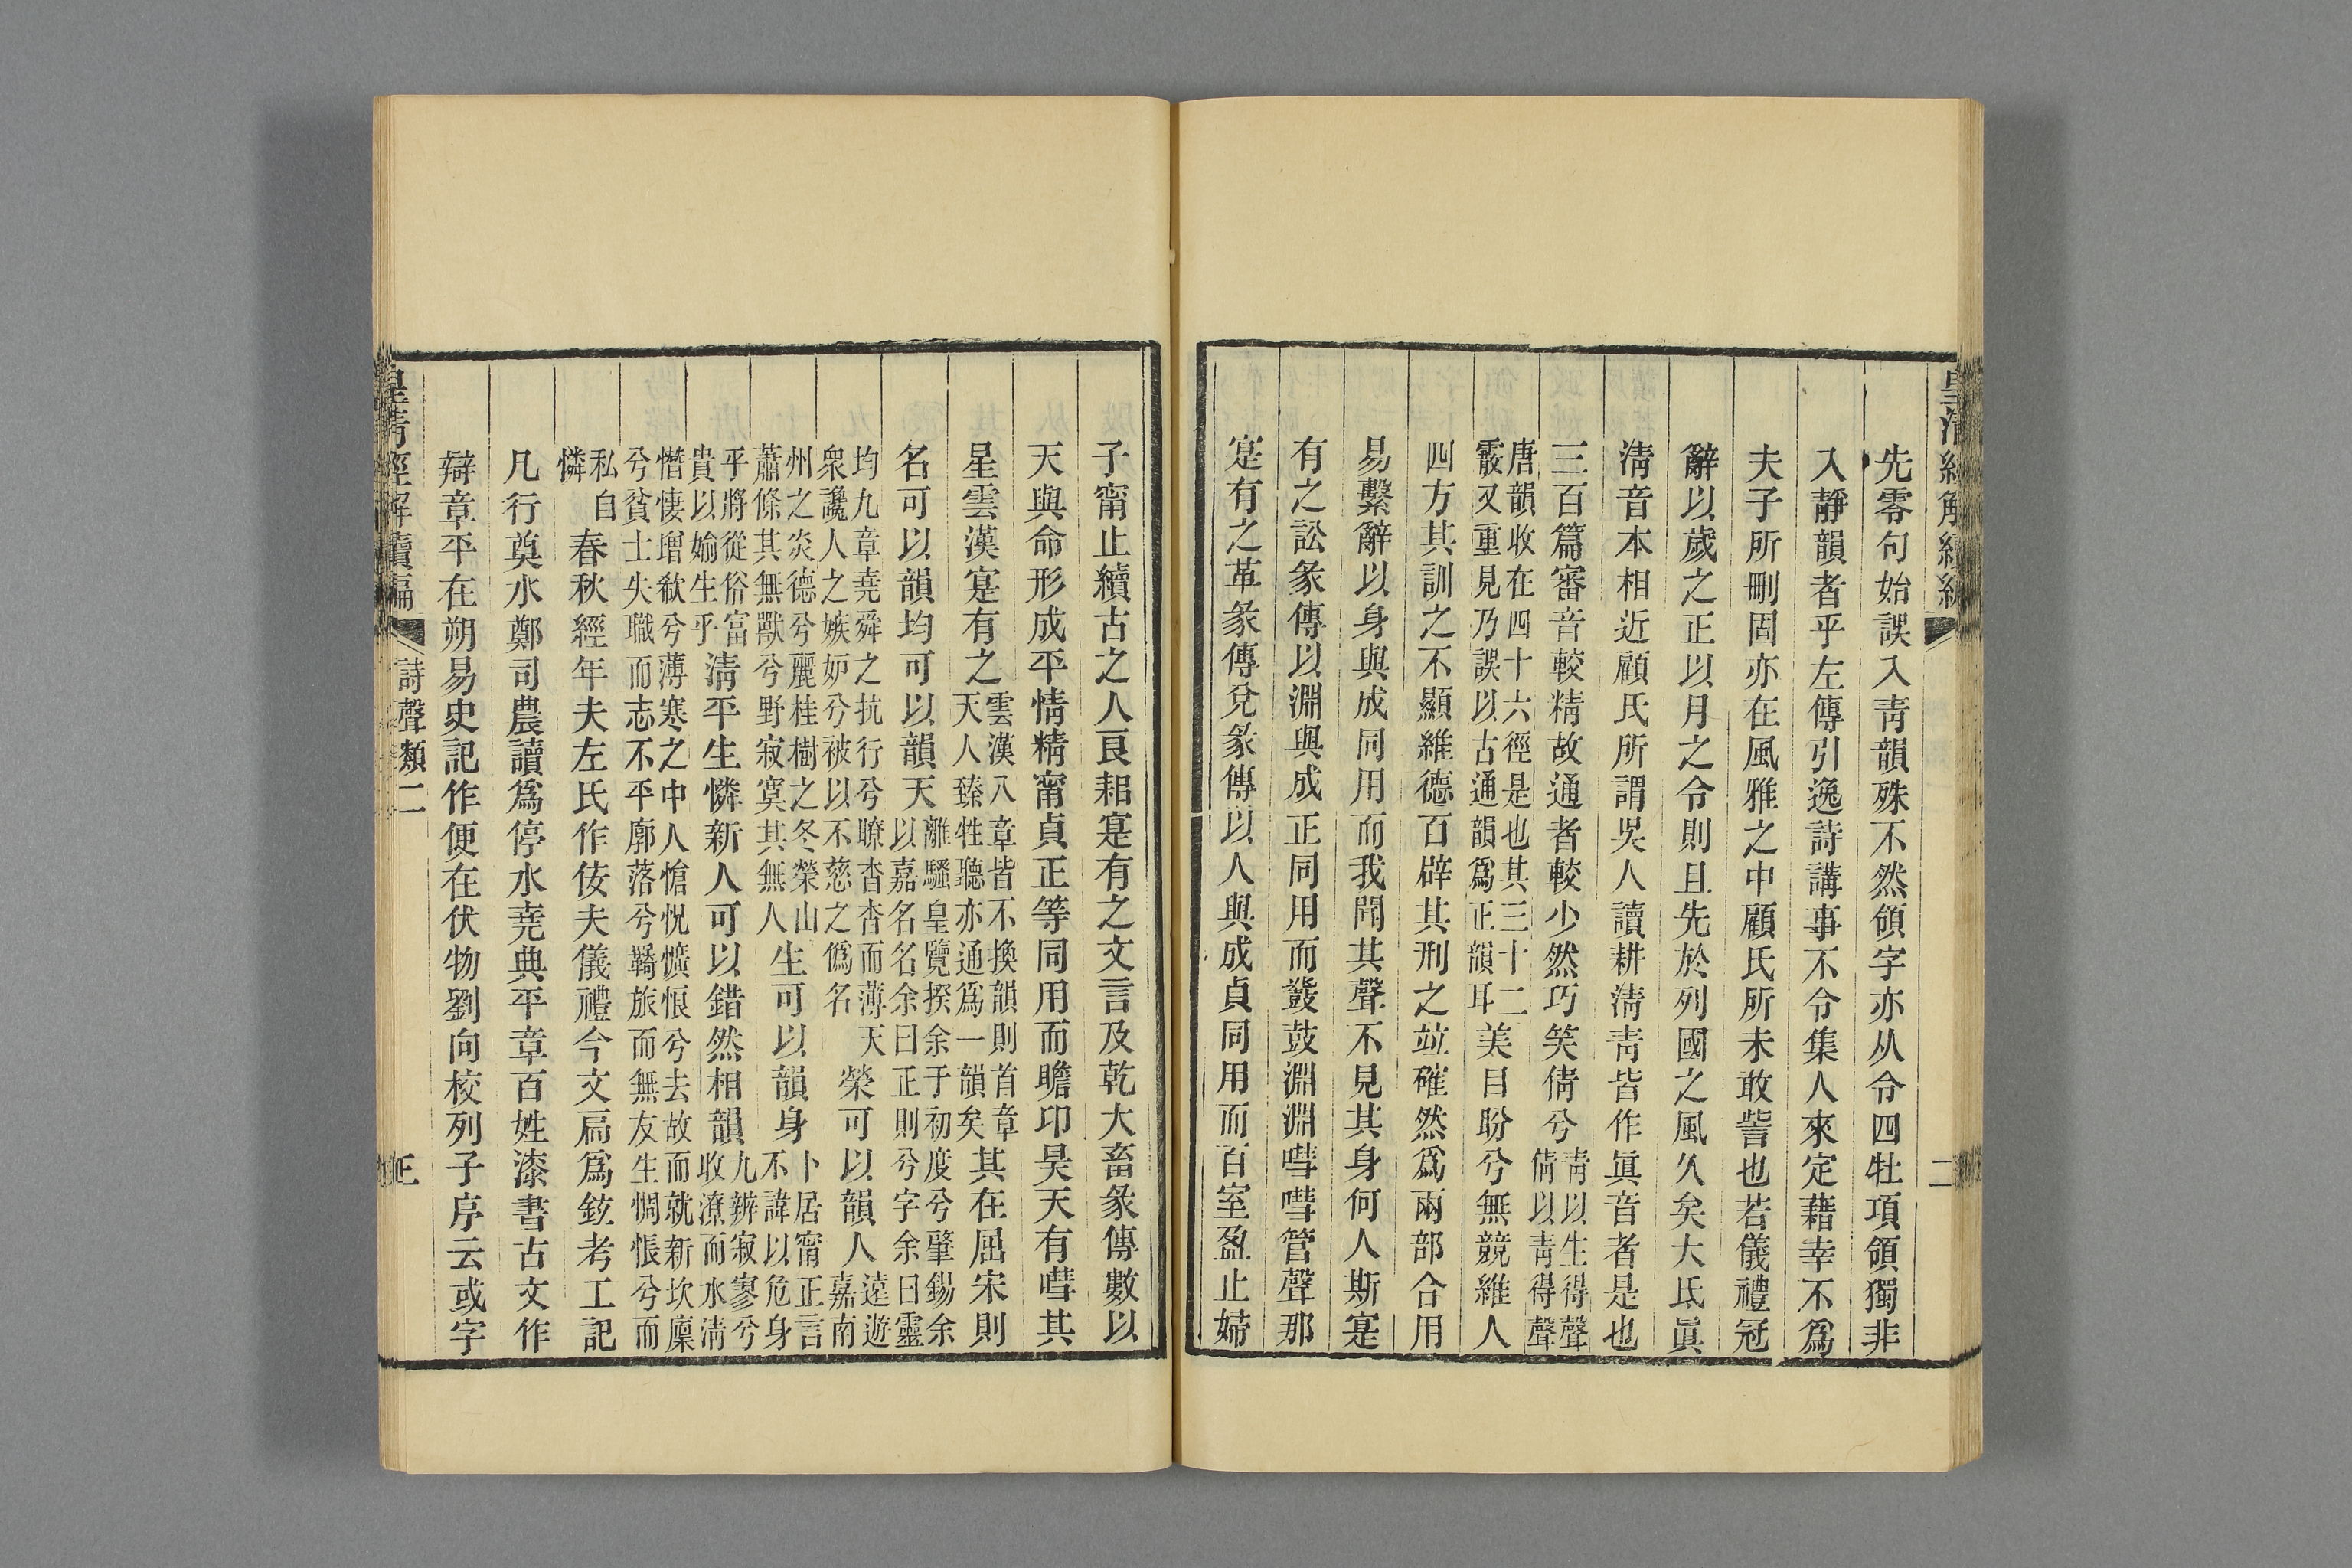 先零句始誤入靑韻殊不然領字亦从令四牡項領獨非
入靜韻者乎左傳引逸詩講事不令集人來定藉幸不爲
夫子所刪固亦在風雅之中顧氏所未敢訾也若儀禮冠
辭以歲之正以月之令則且先於列國之風久矣大氐眞
淸音本相近顧氏所謂吳人讀耕淸靑皆作眞音者是也
三百篇審音較精故通者較少然巧笑倩兮靑以生得聲倩以靑得聲
唐韻收在四十六徑是也其三十二霰又重見乃誤以古通韻爲正韻耳美目盼兮無競維人
四方其訓之不顯維德百辟其刑之竝確然爲兩部合用
易繫辭以身與成同用而我聞其聲不見其身何人斯寔
有之訟彖傳以淵與成正同用而鼗鼓淵淵嘒嘒管聲那
寔有之革彖傳兌彖傳以人與成貞同用而百室盈止婦
子甯止續古之人良耜寔有之文言及乾大畜彖傳數以
天與命形成平情精甯貞正等同用而瞻卬昊天有嘒其
星雲漢寔有之雲漢八章皆不換韻則首章天人臻牲聽亦通爲一韻矣其在屈宋則
名可以韻均可以韻天離騷皇覽揆余于初度兮肇錫余以嘉名名余曰正則兮字余曰靈
均九章堯舜之抗行兮瞭杳杳而薄天衆讒人之嫉妒兮被以不慈之僞名榮可以韻人遠遊嘉南
州之炎德兮麗桂樹之冬榮山蕭條其無獸兮野寂寞其無人生可以韻身卜居甯正言不諱以危身
乎將從俗富貴以媮生乎淸平生憐新人可以錯然相韻九辨寂寥兮收潦而水淸
憯悽增欷兮薄寒之中人愴怳懭悢兮去故而就新坎廩兮貧士失職而志不平廓落兮羇旅而無友生惆悵兮而
私自憐春秋經年夫左氏作佞夫儀禮今文扃爲鉉考工記
凡行奠水鄭司農讀爲停水堯典平章百姓漆書古文作
辯章平在朔易史記作便在伏物劉向校列子序云或字
皇淸經解續編
詩聲類二
二